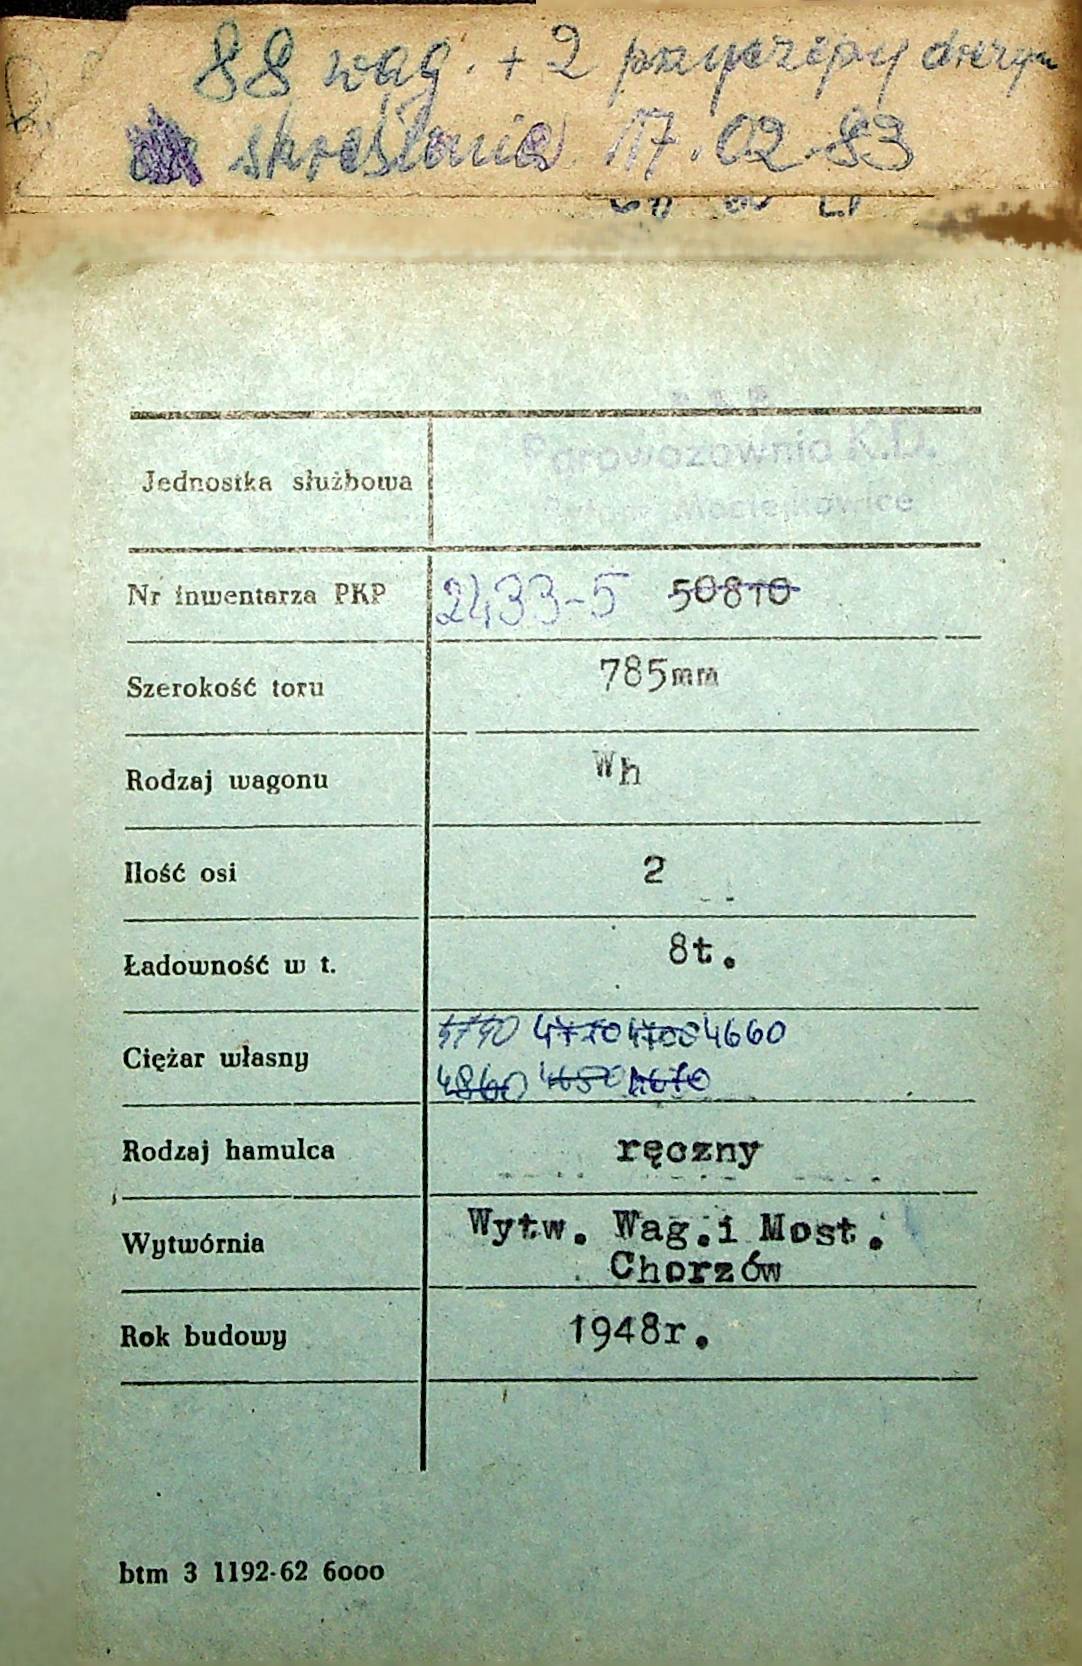 88 wag. + 2 przyczepy drezyn
skreślenie 17.02.83
Parowozownia K.D.
Maciejkowice
Jednostka służbowa
Nr inwentarza PKP 2433-5 50810
Szerokość toru 785mm
Rodzaj wagonu Wh
Ilość osi 2
Ładowność w t. 8t.
4710 4700 4660
Ciężar własny
4860 4650 4670
Rodzaj hamulca ręczny
Wytwórnia Wytw. Wag.i Most.
Chorzów
Rok budowy 1948r.
btm 3 1192-62 6000